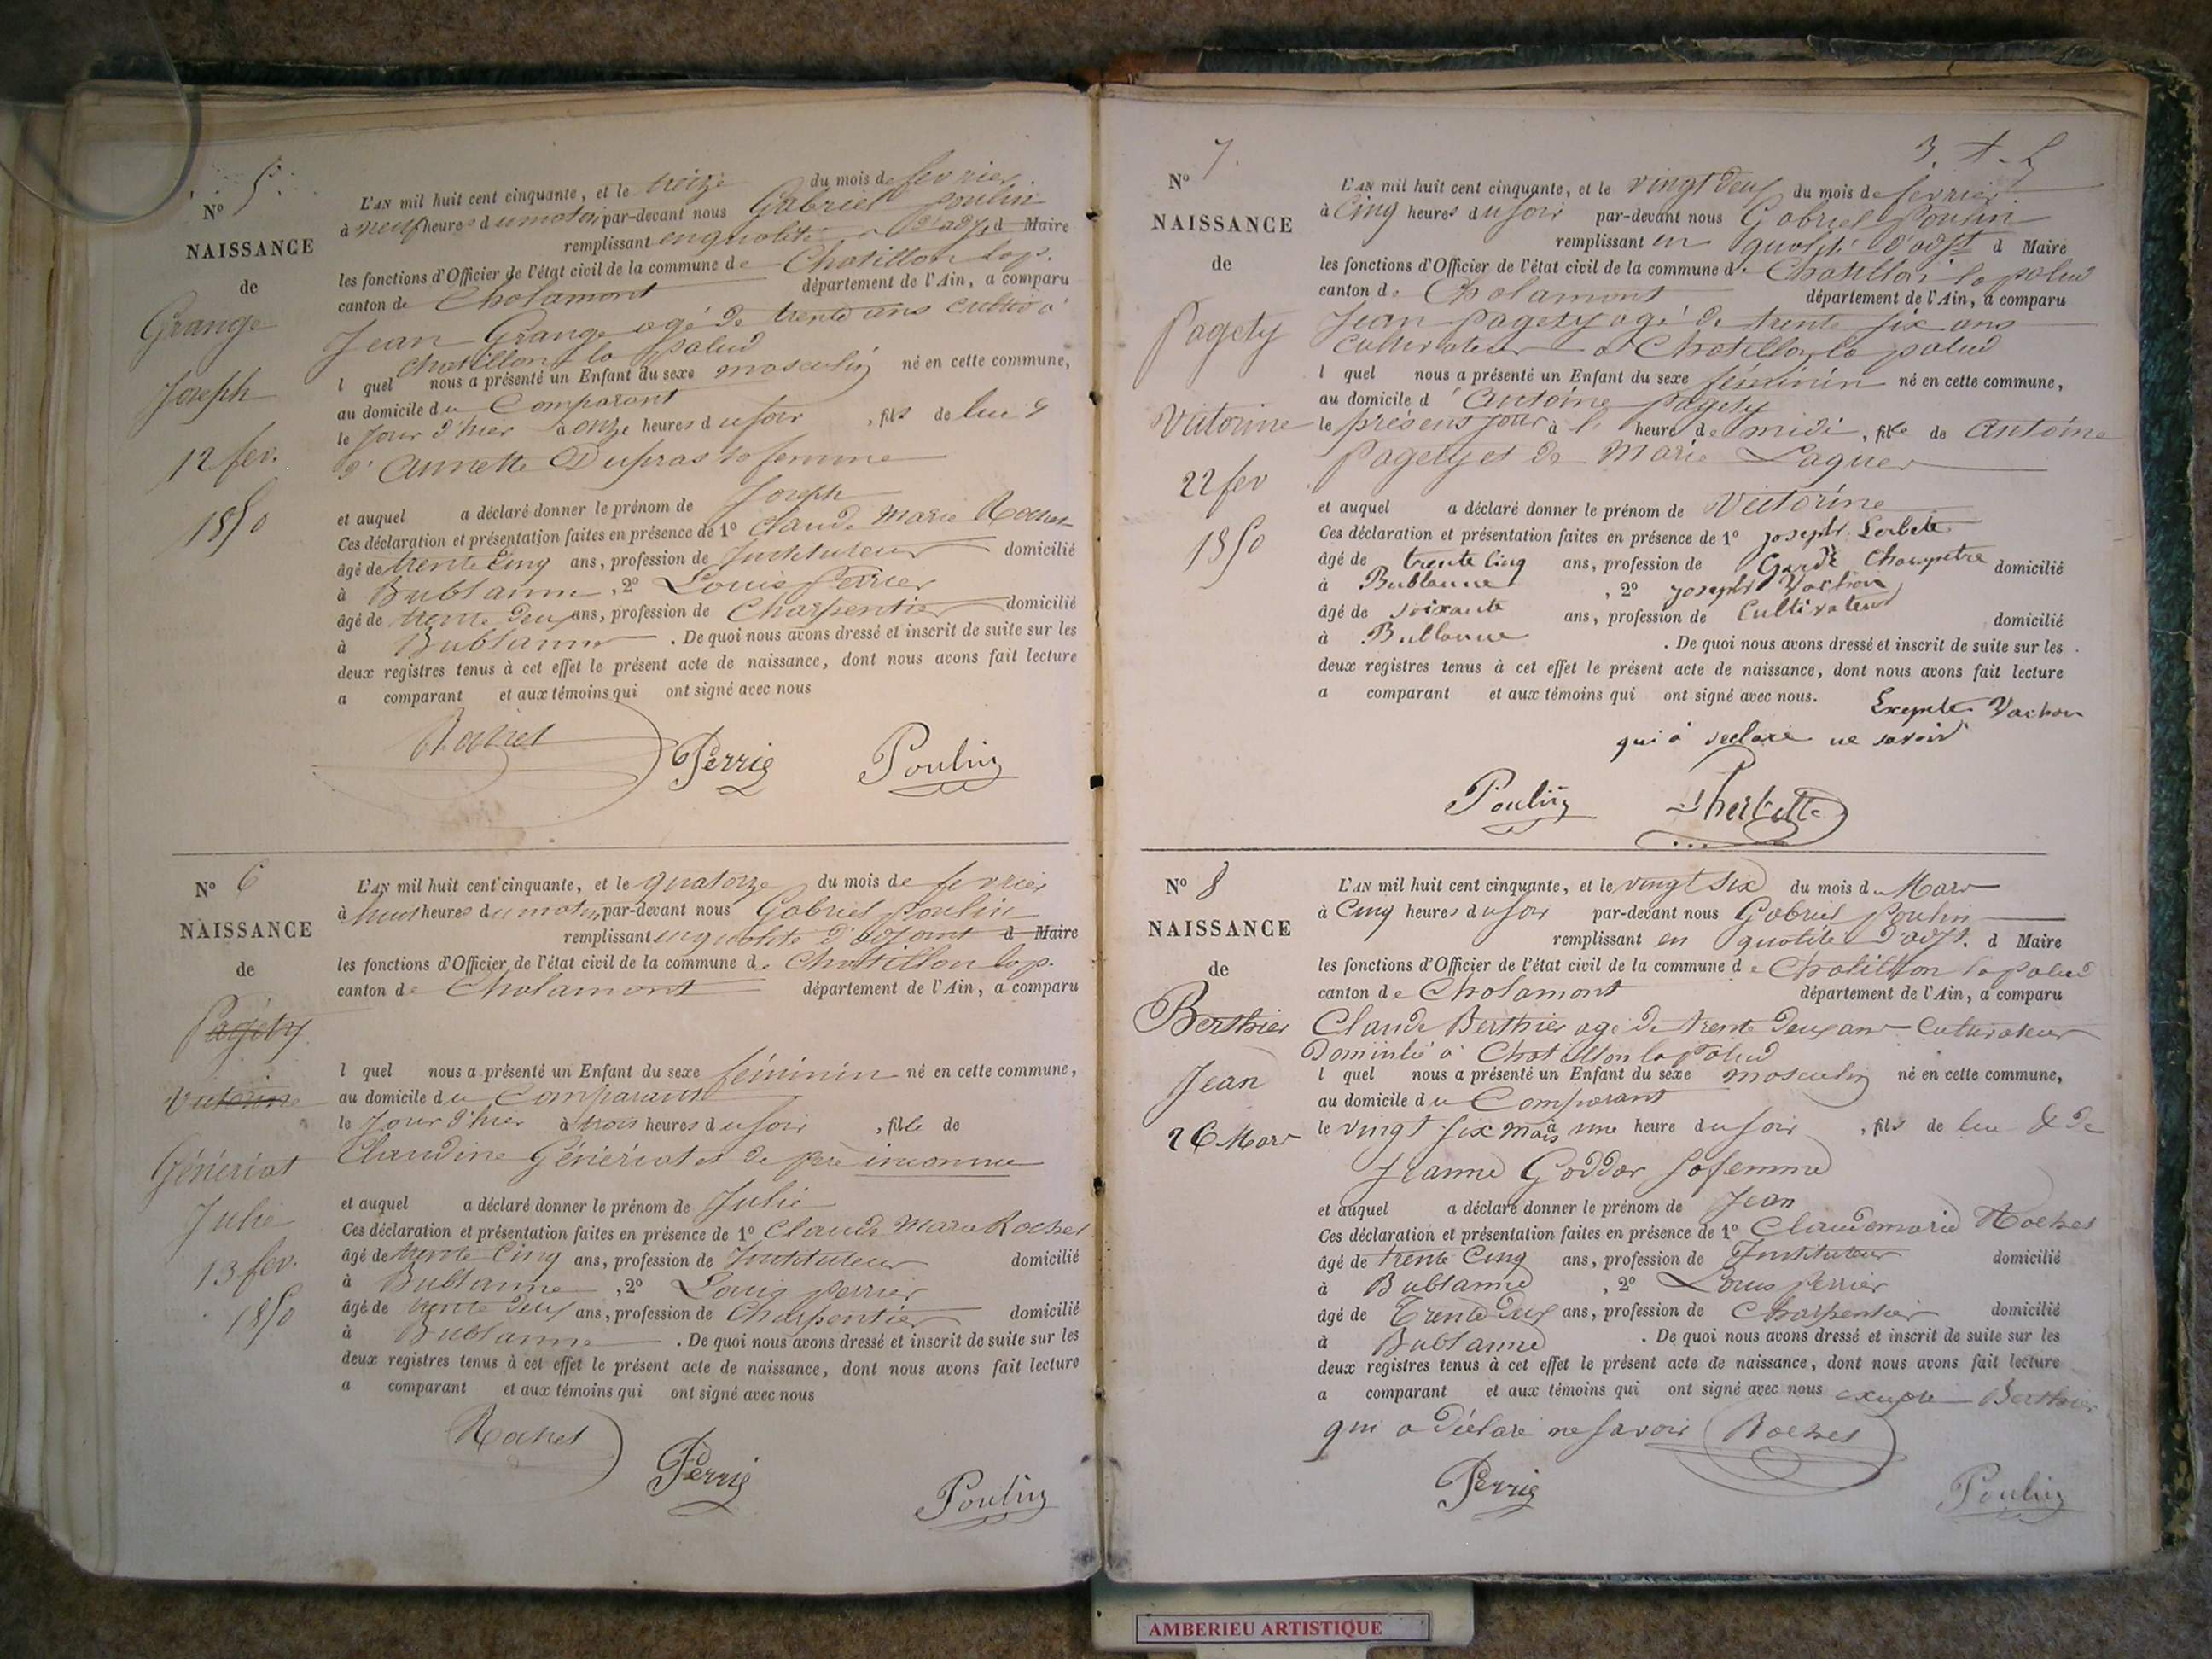 N° 5.
NAISSANCE
de
Grange
Joseph
12 fev.
1850
L'AN mil huit cent cinquante, et le treize du mois de fevrier
à neuf heures du matin par-devant nous Gabriel Poulin
remplissant en qualité d'adjt d Maire
les fonctions d'Officier de l'état civil de la commune de Chatillon lap.
canton de Chalamont département de l'Ain, a comparu
Jean Grange agé de trente ans cultivr à
Chatillon la palud
l quel nous a présenté un Enfant du sexe masculin né en cette commune,
au domicile du Comparant
le jour d'hier à onze heures du soir, fils de lui &
d'Annette Dupras sa femme
et auquel a déclaré donner le prénom de Joseph
Ces déclaration et présentation faites en présence de 1° Claude Marie Rochet
âgé de trente cinq ans, profession de Instituteur domicilié
à Bublanne, 2° Louis Perrier
âgé de trente deux ans, profession de Charpentier domicilié
à Bublanne. De quoi nous avons dressé et inscrit de suite sur les
deux registres tenus à cet effet le présent acte de naissance, dont nous avons fait lecture
a comparant et aux témoins qui ont signé avec nous
Rochet Perrie Poulin
N° 6
NAISSANCE
de
Pagety
Victorine
Génériat
Julie
13 fev.
1850
L'AN mil huit cent cinquante, et le quatorze du mois de fevrier
à huit heures du matin, par-devant nous Gabriel Poulin
remplissant en qualité d'adjoint d Maire
les fonctions d'Officier de l'état civil de la commune de Chatillon lap.
canton de Chalamont département de l'Ain, a comparu
l quel nous a présenté un Enfant du sexe féminin né en cette commune,
au domicile du Comparant
le jour d'hier à trois heures du soir, fille de
Claudine Génériat et de père inconnu
et auquel a déclaré donner le prénom de Julie
Ces déclaration et présentation faites en présence de 1° Claude Marie Rochet
âgé de trente cinq ans, profession de Instituteur domicilié
à Bublanne, 2° Louis perrier
âgé de trente deux ans, profession de Charpentier domicilié
à Bublanne. De quoi nous avons dressé et inscrit de suite sur les
deux registres tenus à cet effet le présent acte de naissance, dont nous avons fait lecture
a comparant et aux témoins qui ont signé avec nous
Rochet
Perrie
Poulin
3.
N° 7.
NAISSANCE
de
Pagety
Victorine
22 fev
1850
L'AN mil huit cent cinquante, et le vingt deux du mois de fevrier
à cinq heures du soir par-devant nous Gabriel Poulin
remplissant en qualité d'adjt d Maire
les fonctions d'Officier de l'état civil de la commune de Chatillon la palud
canton de Chalamont département de l'Ain, a comparu
Jean pagety agé de trente six ans
cultivateur à Chatillon la palud
l quel nous a présenté un Enfant du sexe féminin né en cette commune,
au domicile d'Antoine pagety
le présent jour à l' heure de midi, fille de Antoine
Pagety et de Marie Laguer
et auquel a déclaré donner le prénom de Victorine
Ces déclaration et présentation faites en présence de 1° joseph Lerbette
âgé de trente cinq ans, profession de Garde Champetre domicilié
à Bublanne, 2° joseph Vachon
âgé de soixante ans, profession de Cultivateur domicilié
à Bublanne. De quoi nous avons dressé et inscrit de suite sur les
deux registres tenus à cet effet le présent acte de naissance, dont nous avons fait lecture
a comparant et aux témoins qui ont signé avec nous. Excepte Vachon
qui a declaré ne savoir
Poulin Lherbette
N° 8
NAISSANCE
de
Berthier
Jean
26 Mars
L'AN mil huit cent cinquante, et le vingt six du mois de Mars
à Cinq heures du soir par-devant nous Gabriel Poulin
remplissant en qualité d'adjt. d Maire
les fonctions d'Officier de l'état civil de la commune de Chatillon la palud
canton de Chalamont département de l'Ain, a comparu
Claude Berthier agé de trente deux ans Cultivateur
Domicilié à Chatillon la palud
l quel nous a présenté un Enfant du sexe masculin né en cette commune,
au domicile du Comparant
le vingt six mars à une heure du soir, fils de lui & de
Jeanne Goddar sa femme
et auquel a déclaré donner le prénom de Jean
Ces déclaration et présentation faites en présence de 1° Claude marie Rochet
âgé de trente cinq ans, profession de Instituteur domicilié
à Bublanne, 2° Louis perrier
âgé de trente deux ans, profession de Charpentier domicilié
à Bublanne. De quoi nous avons dressé et inscrit de suite sur les
deux registres tenus à cet effet le présent acte de naissance, dont nous avons fait lecture
a comparant et aux témoins qui ont signé avec nous excepté Berthier
qui a déclaré ne savoir Rochet
Perrie Poulin
AMBERIEU ARTISTIQUE